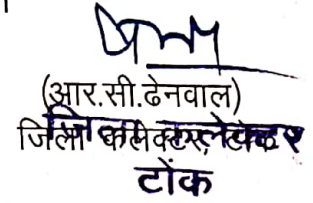 (आर.सी.ढेनवाल)
जिला कलेक्टर, टोंक
जिला कलेक्टर
टोंक